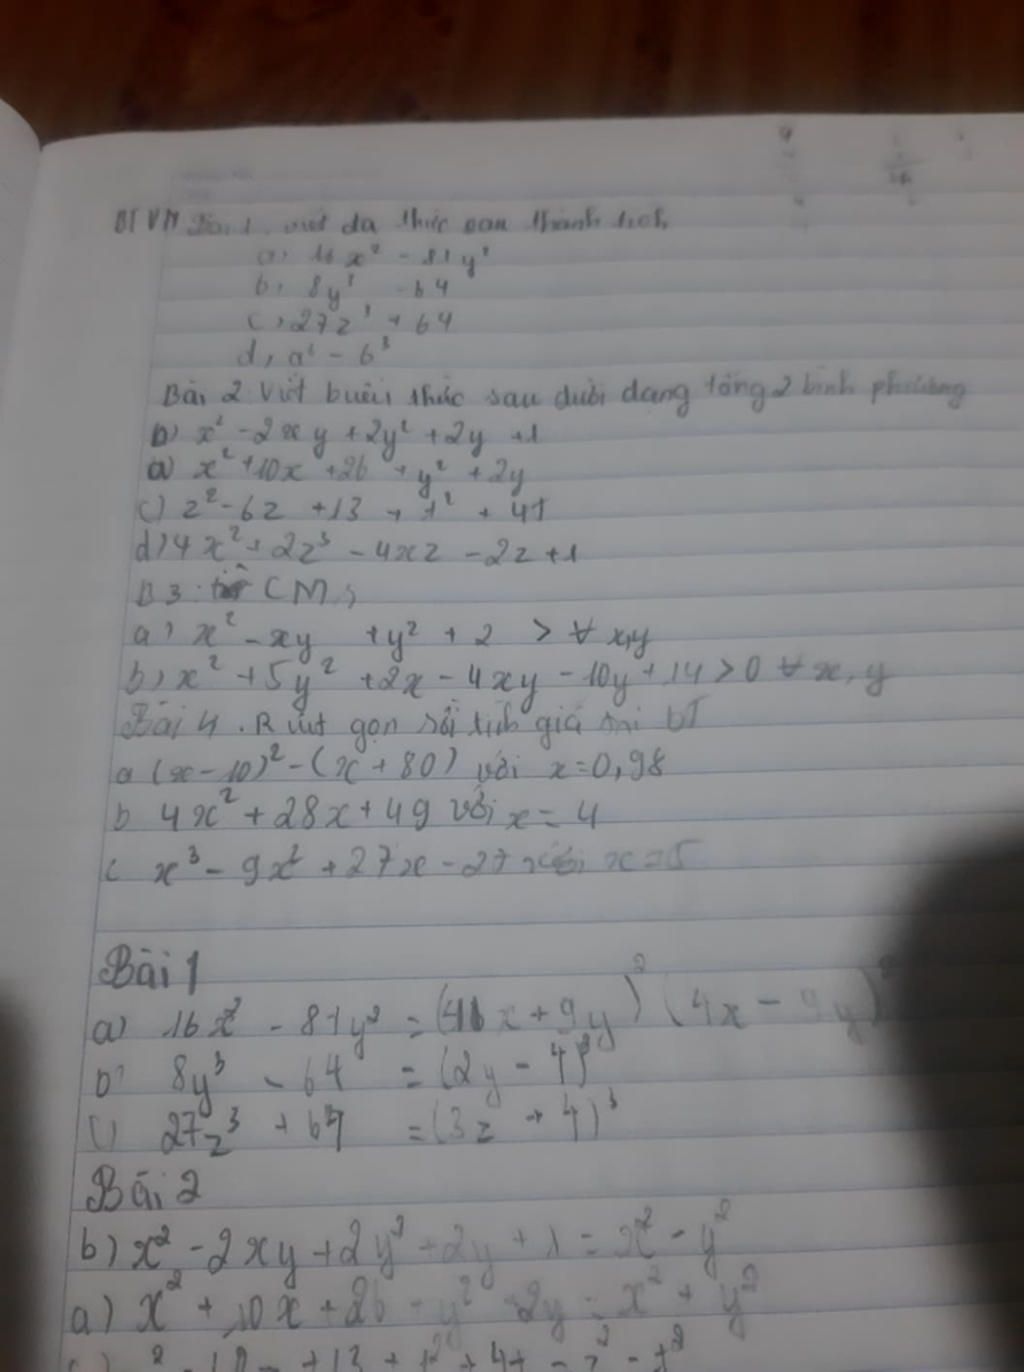 BTVN Bài 1. viết đa thức sau thành tích
a, 16x² - 81y²
b, 8y³ - 64
c, 27z³ + 64
d, a⁶ - b³
Bài 2 Viết buểu thức sau dưới dạng tổng 2 bình phương
b) x² - 2xy + 2y² + 2y + 1
a) x² + 10x + 26 + y² + 2y
c) z² - 6z + 13 + t² + 4t
d) 4x² + 2z³ - 4xz - 2z + 1
B3: CM
a) x² - xy + y² + 2 > ∀ x,y
b) x² + 5y² + 2x - 4xy - 10y + 14 > 0 ∀ x, y
Bài 4. Rút gọn rồi tính giá trị BT
a (x - 10)² - (x + 80) với x = 0,98
b 4x² + 28x + 49 với x = 4
c x³ - 9x² + 27x - 27 với x = 5
Bài 1
a) 16x² - 81y² = (4x + 9y)² (4x - 9y)²
b) 8y³ - 64 = (2y - 4)³
c) 27z³ + 64 = (3z + 4)³
Bài 2
b) x² - 2xy + 2y² + 2y + 1 = x² - y²
a) x² + 10x + 26 - y² 2y = x² + y²
+ 13 + t² + 4t = z² - t²